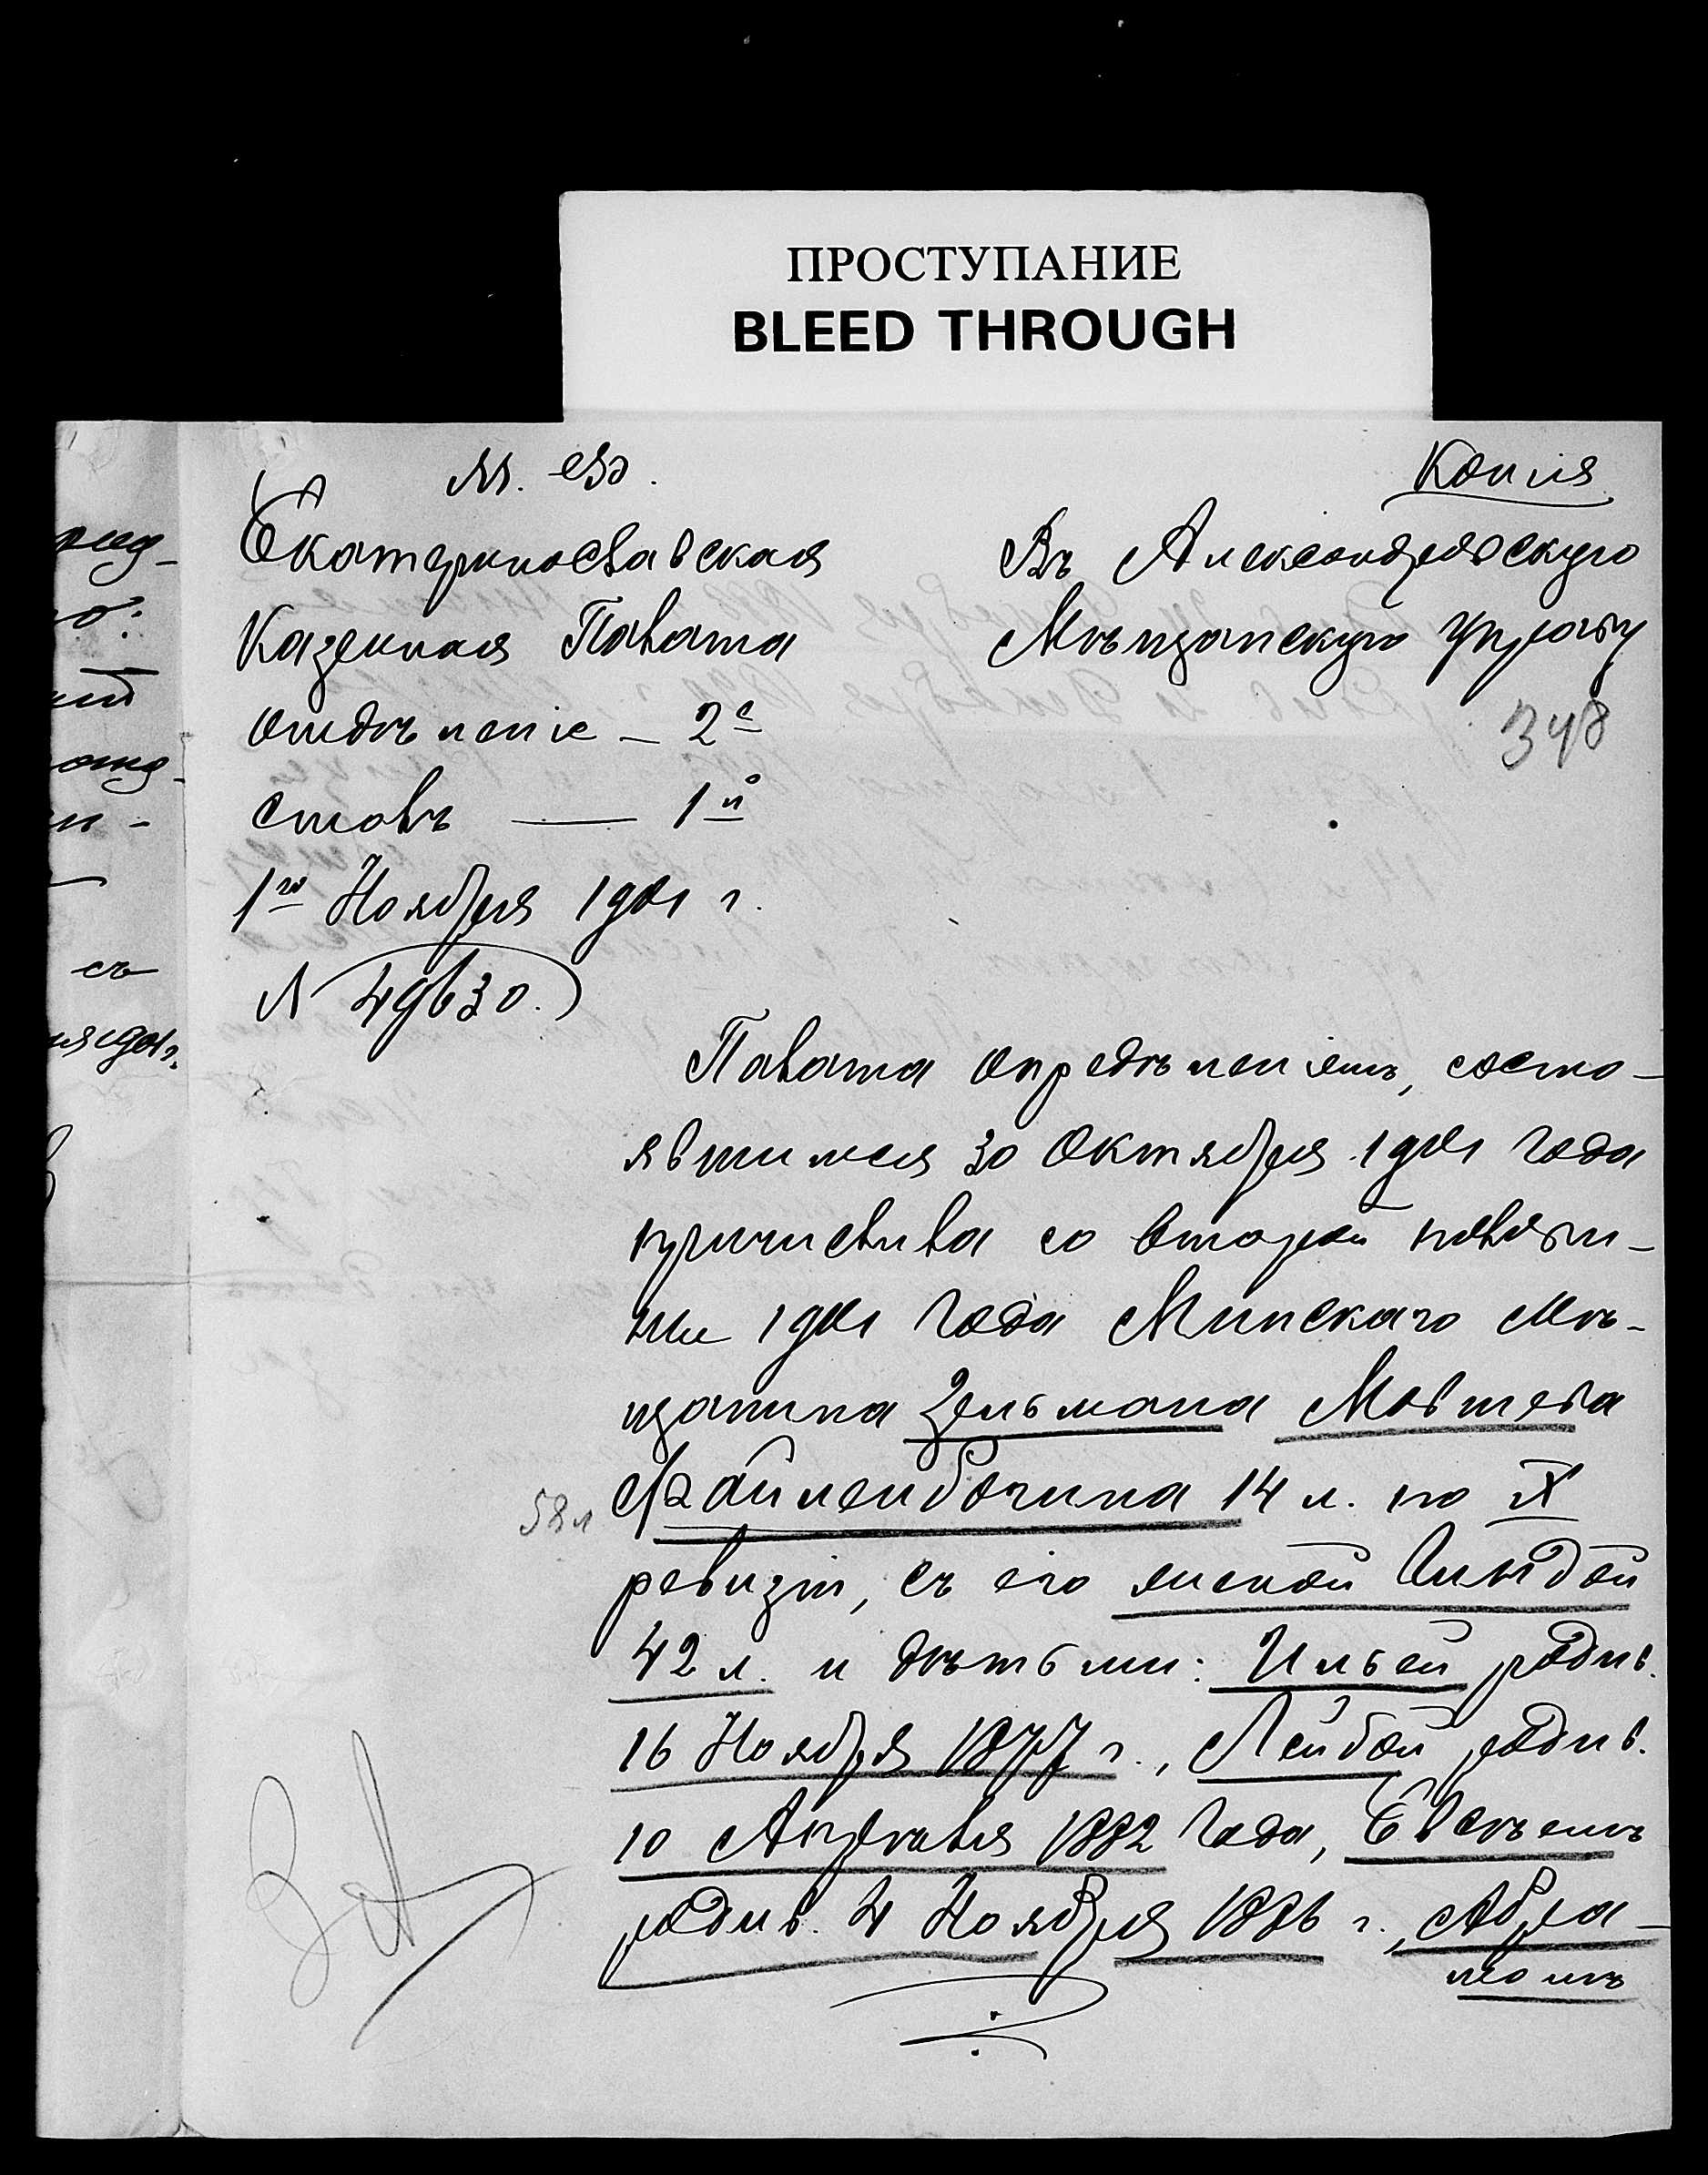 ПРОСТУПАНИЕ
BLEED THROUGH
М. Ф.
Копія
Екатеринославская
Казенная Палата
Отдѣленіе — 2е
Столъ — 1й
1го Ноября 1901 г.
№ 49630.
Въ Александровскую
Мѣщанскую Управу
348
Палата опредѣленіемъ, состо-
явшимся 30 Октября 1901 года
причислила со второй полови-
ны 1901 года Минскаго мѣ-
щанина Зельмана Мовшева
Файленбогина 14 л. по IX
58 л
ревизіи, съ его женой
42 л. и дѣтьми: Ильей родив.
16 Ноября 1877 г., Лейбой родив.
10 Апрѣля 1882 года, Евсѣемъ
родив. 4 Ноября 1886 г., Абра-
момъ
съ